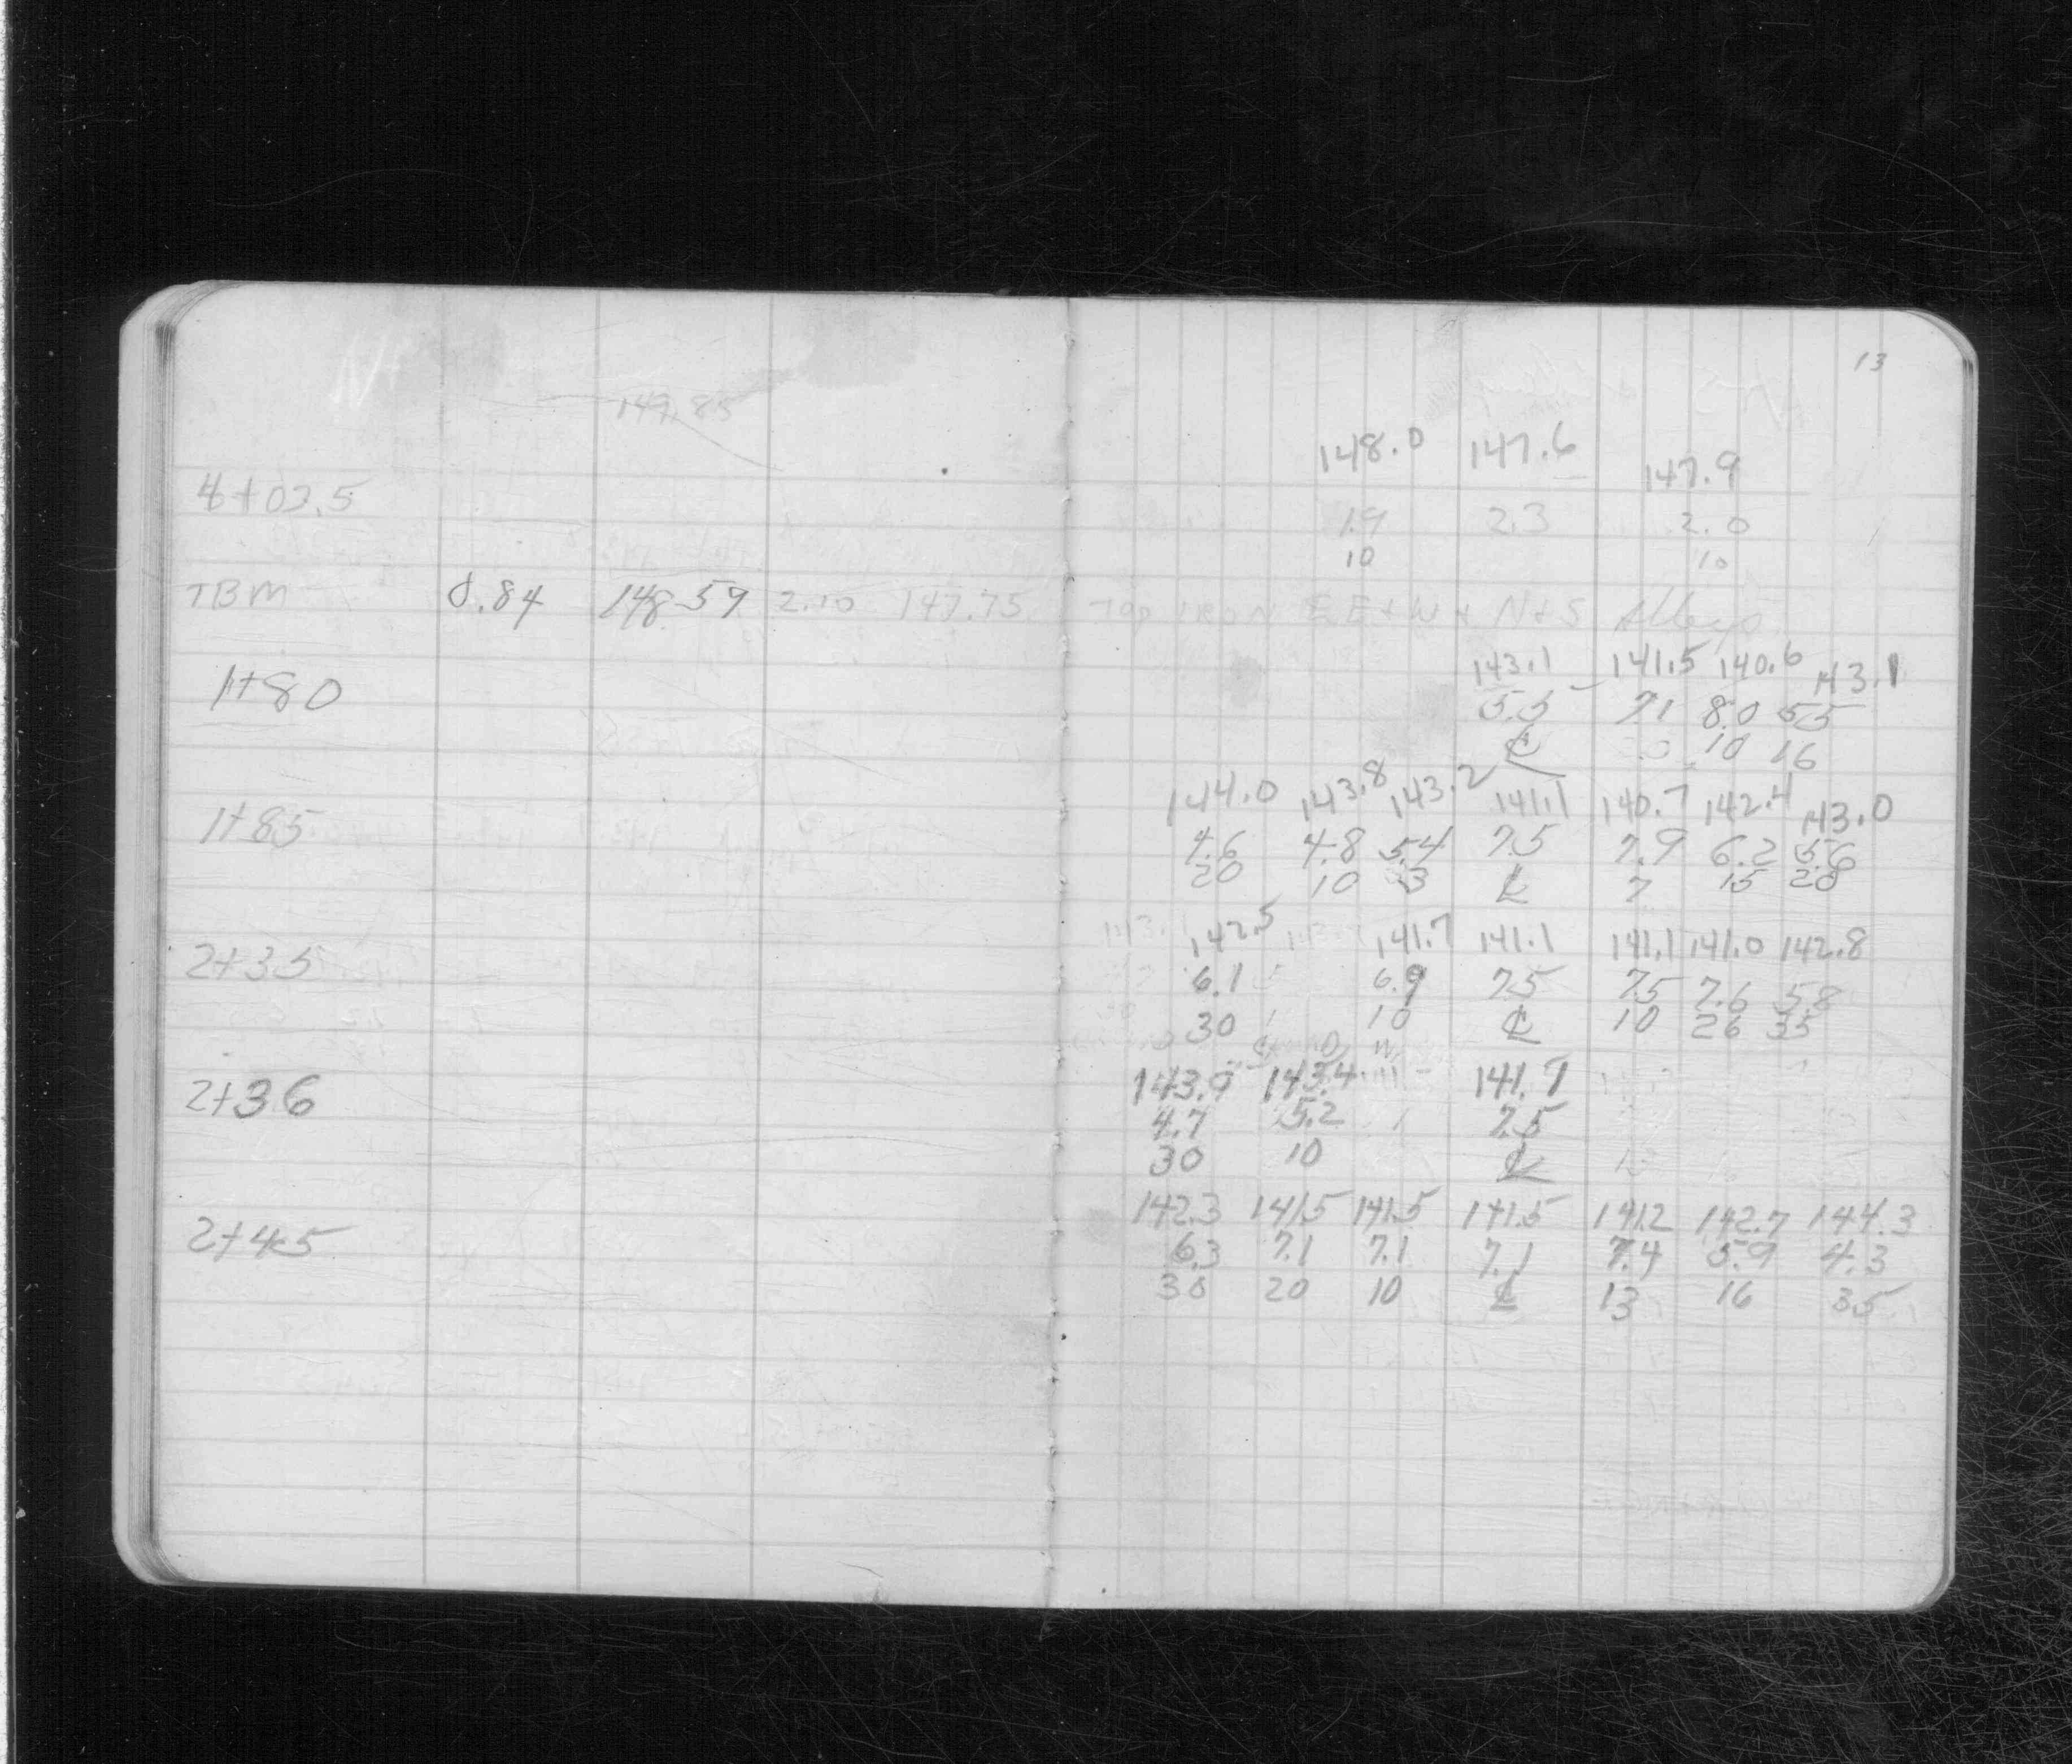 13
149.85
148.0 147.6 147.9
4+03.5 1.9 2.3 2.0
10 10
TBM 0.84 148.59 2.10 147.75 Top Iron E E+W + N+S Alleys
143.1 141.5 140.6 143.1
1+80 5.5 7.1 8.0 5.5
℄ 10 16
144.0 143.8 143.2 141.1 140.7 142.4 143.0
1+85 4.6 4.8 5.4 7.5 7.9 6.2 5.6
20 10 3 ℄ 7 15 20
142.5 141.7 141.1 141.1 141.0 142.8
2+35 6.1 6.9 7.5 7.5 7.6 5.8
30 10 ℄ 10 26 35
143.9 143.4 141.7
2+36 4.7 5.2 7.5
30 10 ℄
142.3 141.5 141.5 141.5 141.2 142.7 144.3
2+45 6.3 7.1 7.1 7.1 7.4 5.9 4.3
30 20 10 ℄ 13 16 35